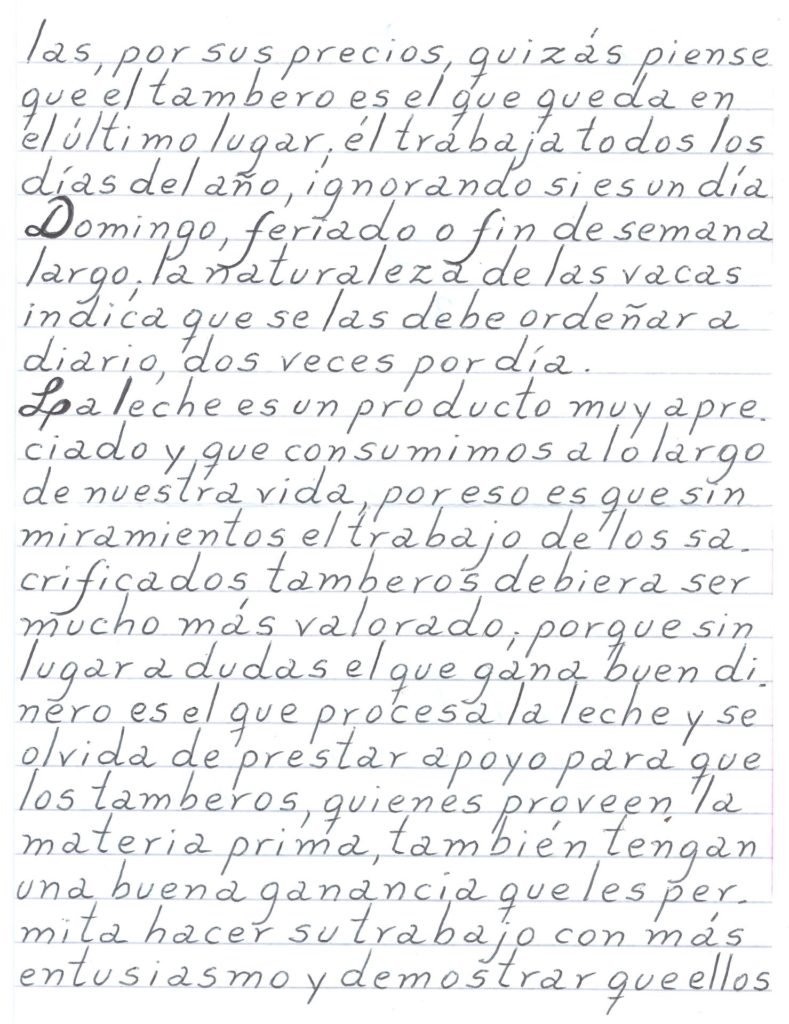 las, por sus precios, quizás piense
que el tambero es el que queda en
el último lugar; él trabaja todos los
días del año, ignorando si es un día
Domingo, feriado o fin de semana
largo; la naturaleza de las vacas
indica que se las debe ordeñar a
diario, dos veces por día.
La leche es un producto muy apre-
ciado y que consumimos a lo largo
de nuestra vida, por eso es que sin
miramientos el trabajo de los sa-
crificados tamberos debiera ser
mucho más valorado; porque sin
lugar a dudas el que gana buen di-
nero es el que procesa la leche y se
olvida de prestar apoyo para que
los tamberos, quienes proveen la
materia prima, también tengan
una buena ganancia que les per-
mita hacer su trabajo con más
entusiasmo y demostrar que ellos